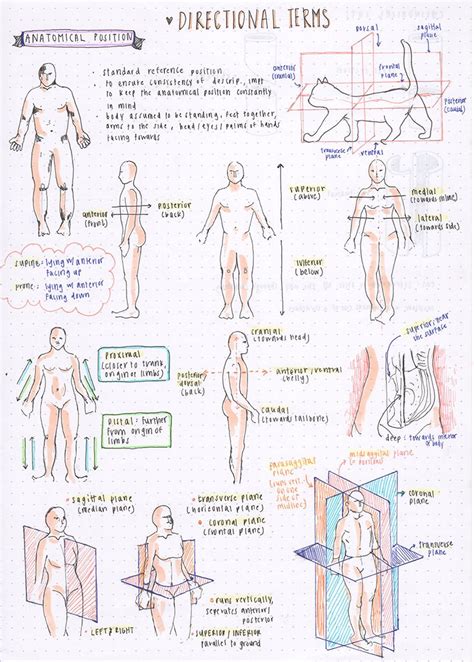 ♥ DIRECTIONAL TERMS
ANATOMICAL POSITION
· standard reference position
· to ensure consistency of descrip., impt
to keep the anatomical position constantly
in mind
· body assumed to be standing, feet together,
arms to the side, head/eyes/palms of hands
facing towards
dorsal
sagittal
plane
anterior
(cranial)
frontal
plane
posterior
(caudal)
transverse
plane
ventral
anterior
(front)
posterior
(back)
superior
(above)
inferior
(below)
medial
(towards midline)
lateral
(towards side)
supine: lying w/ anterior
facing up
prone: lying w/ anterior
facing down
Proximal
(closer to trunk,
origin of limbs)
Distal: further
from origin of
limbs
cranial
(towards head)
posterior/
dorsal
(back)
anterior / ventral
(belly)
caudal
(towards tailbone)
superior: near
the surface
deep: towards interior
of body
sagittal plane
(median plane)
LEFT & RIGHT
transverse plane
(horizontal plane)
coronal plane
(frontal plane)
runs vertically,
seperates anterior &
posterior
SUPERIOR / INFERIOR
parallel to ground
parasagittal
plane
(runs vert.
on one
side of
midline)
midsagittal plane
coronal
plane
transverse
plane